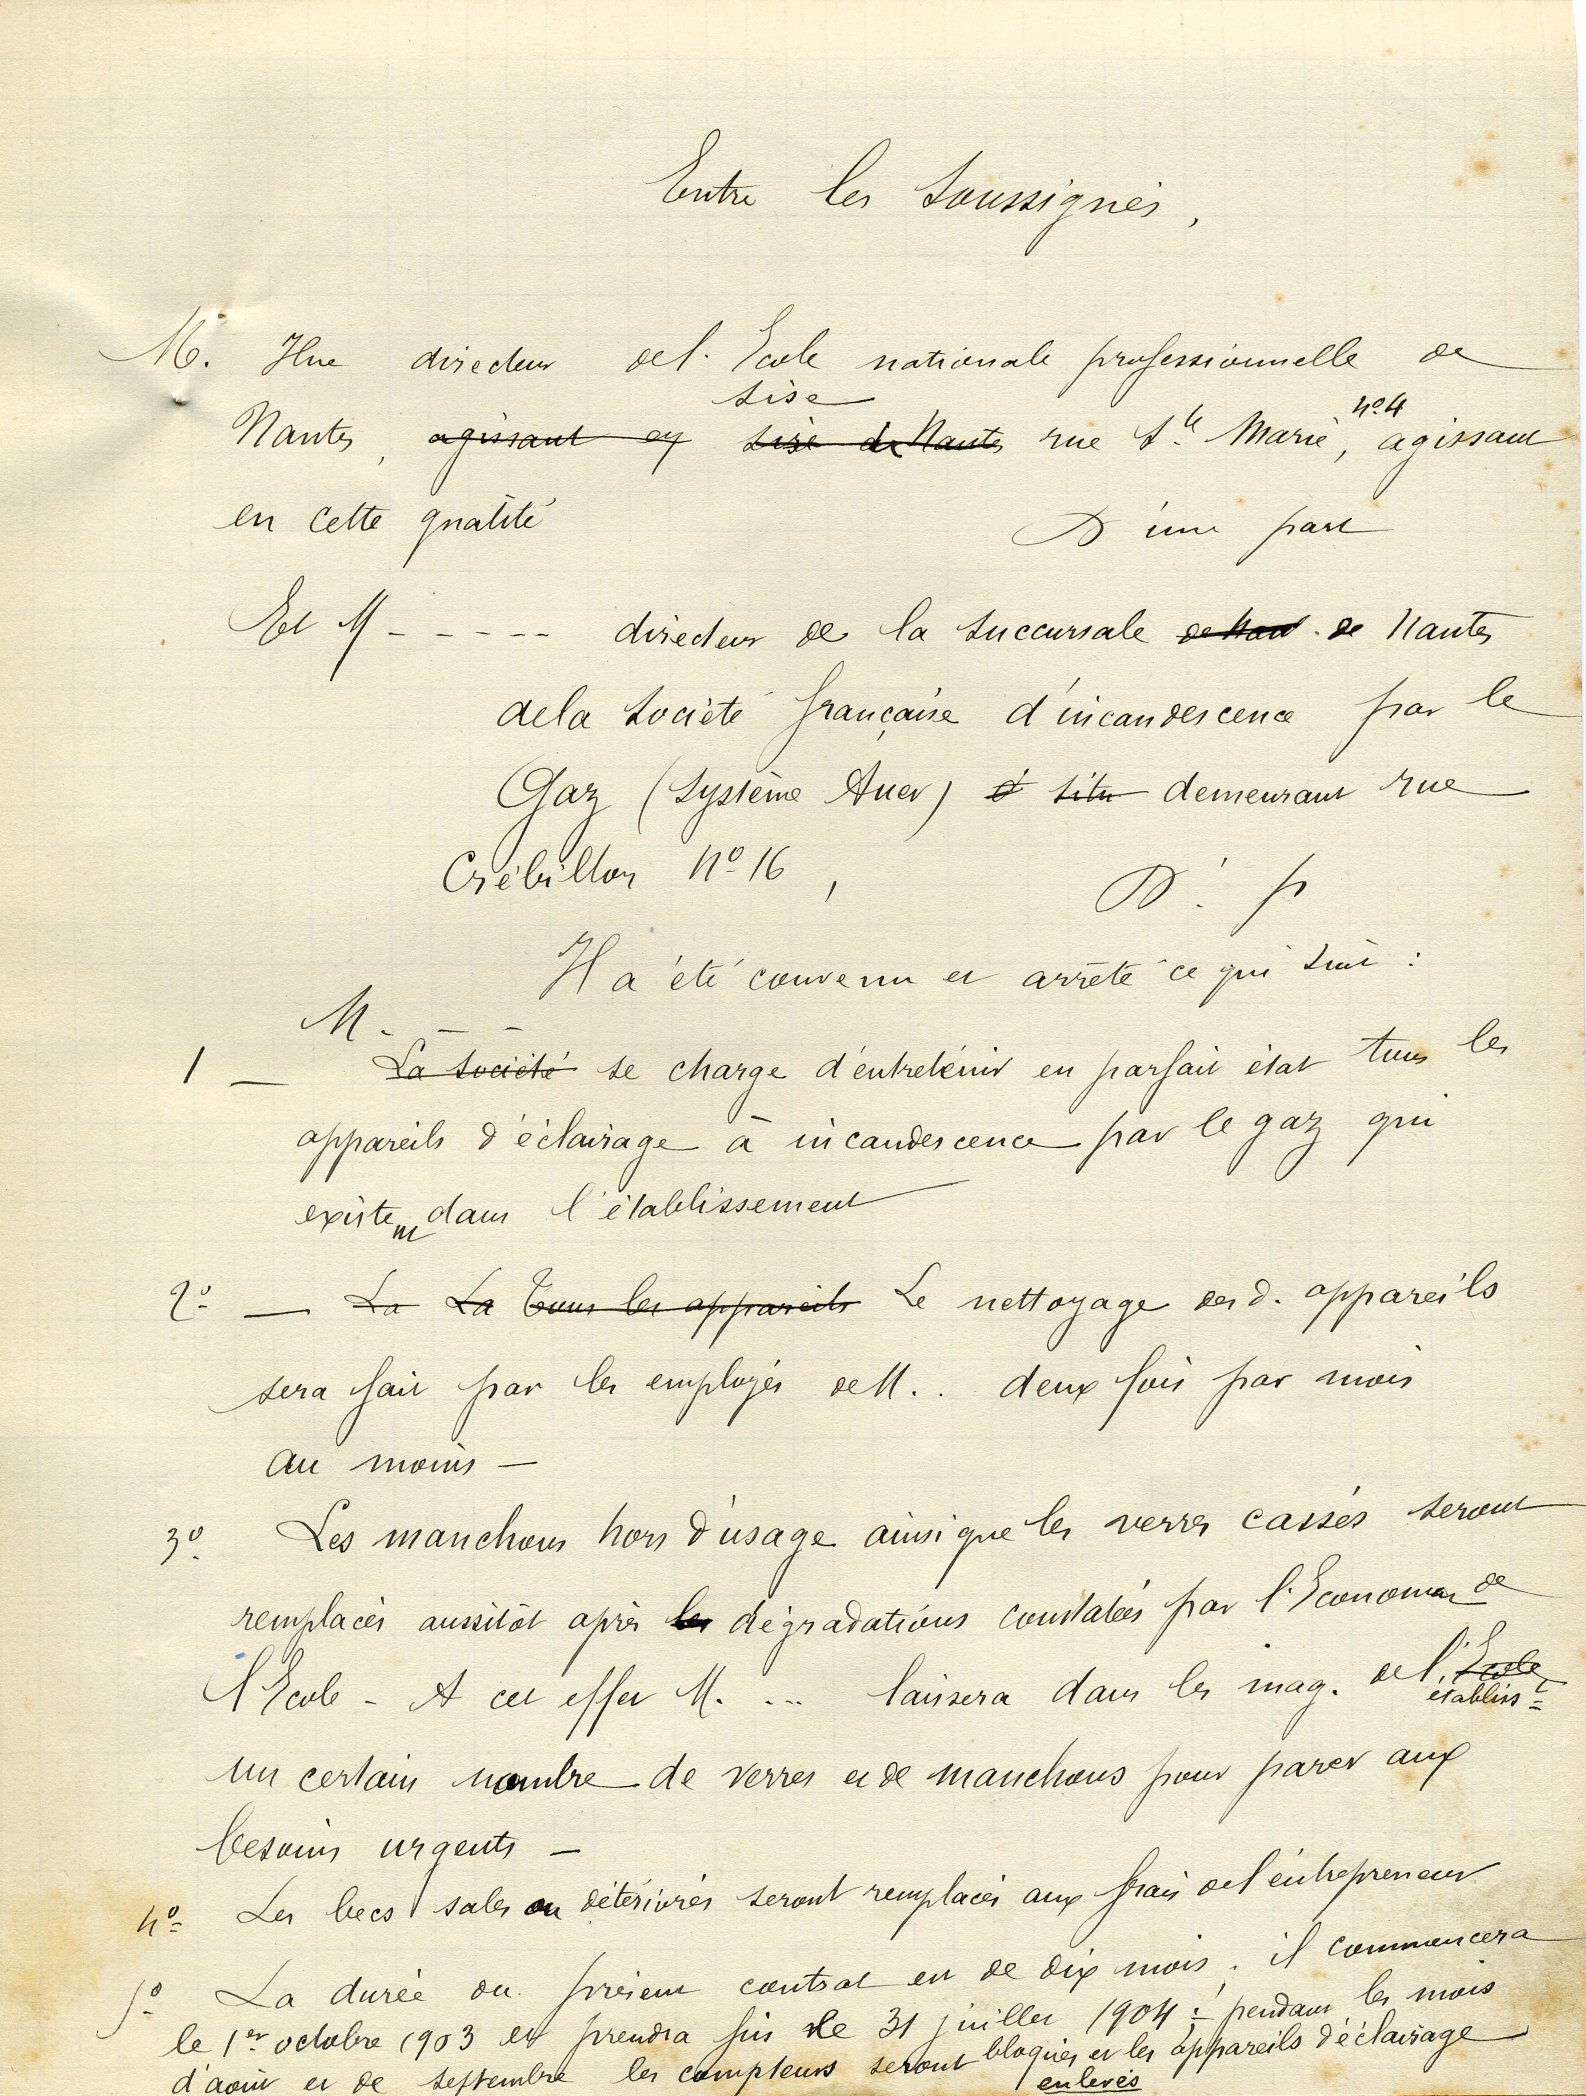 Entre les soussignés,
M. Hue directeur de l'Ecole nationale professionnelle de
sise
Nantes, agissant en sise de Nantes rue Ste Marie, n° 4 agissant
en cette qualité D'une part
Et M ----- directeur de la succursale de Nan de Nantes
de la société française d'incandescence par le
Gaz (système Auer) et situ demeurant rue
Crébillon N° 16, D'. p
Il a été convenu et arrêté ce qui suit :
M. - -
1 — La société se charge d'entretenir en parfait état tous les
appareils d'éclairage à incandescence par le gaz qui
existent dans l'établissement
2° — La La Tous les appareils Le nettoyage desd. appareils
sera fait par les employés de M. . deux fois par mois
au moins —
3° Les manchons hors d'usage ainsi que les verres cassés seront
remplacés aussitôt après les dégradations constatées par l'Econome de
l'Ecole - A cet effet M. ... laissera dans les mag. de l'Ecole
établisst
un certain nombre de verres et de manchons pour parer aux
besoins urgents —
4° Les becs sales ou détériorés seront remplacés aux frais de l'entrepreneur
5° La durée du présent contrat est de dix mois, il commencera
le 1er octobre 1903 et prendra fin le 31 juillet 1904 : pendant les mois
d'août et de septembre les compteurs seront bloqués et les appareils d'éclairage
enlevés